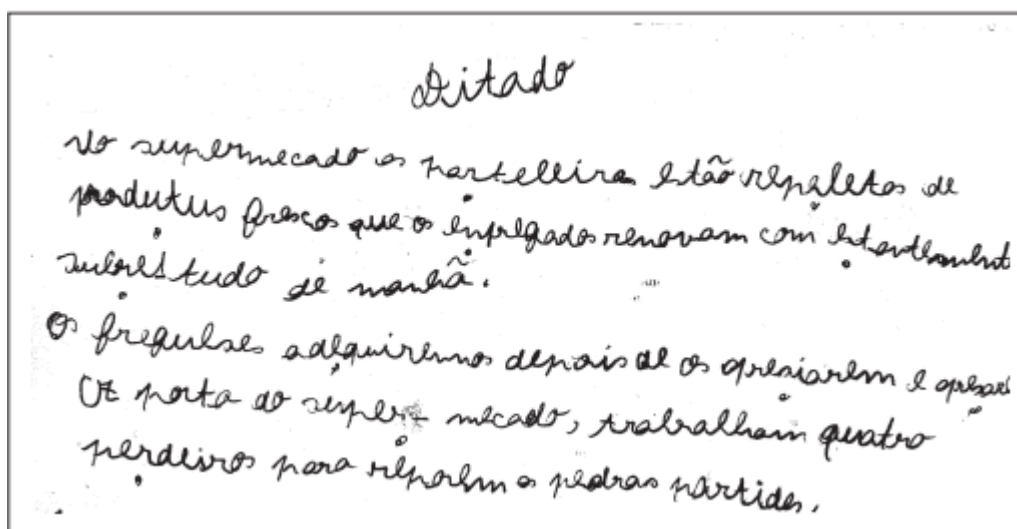 Ditado
No supermecado as partelleira estão repaletas de
produtus frescos que os enpregados renovam com estantemente
subrestudo de manhã.
Os freguesses adequirennos depois de os apresiarem e
Á porta do super mecado, trabalham quatro
perdeiros para reporem as pedras partidas.